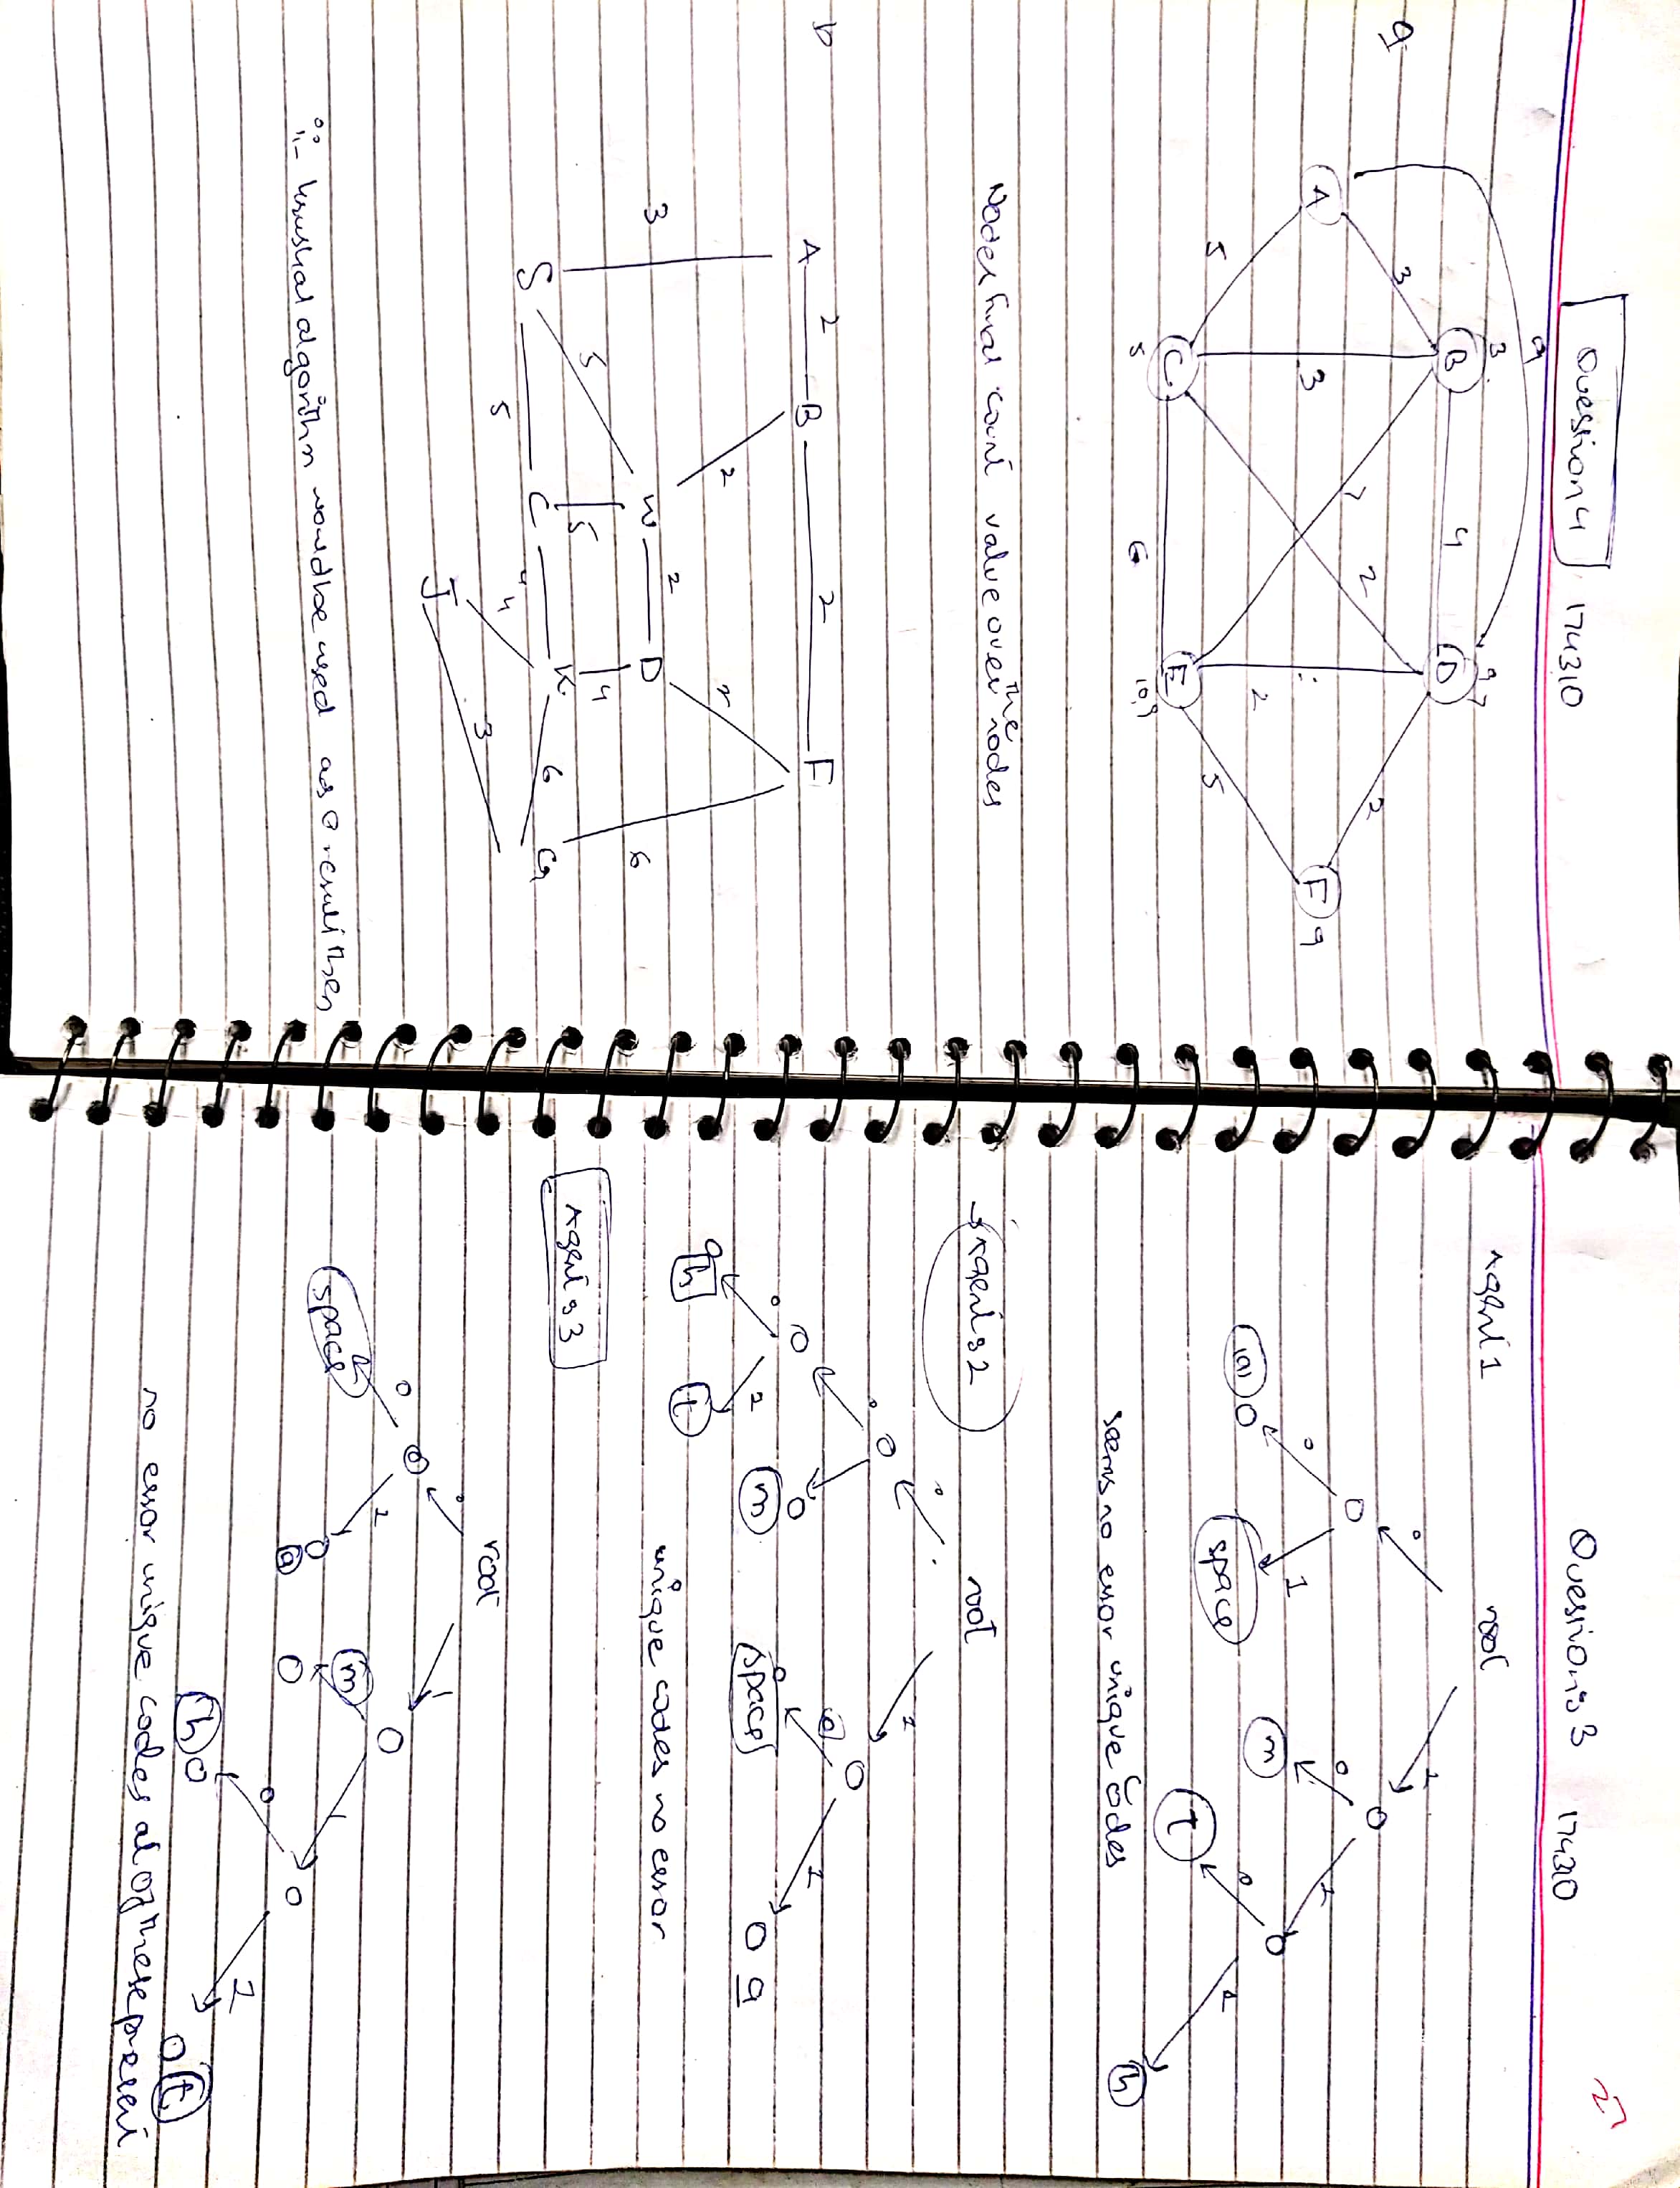 Question 4 174310
9
3
9 7
B 4 D
3
2
2
7
A
3
F 9
2
5
5
C
E
5
6
10,9
a
Nodes final count value over the nodes
b
A 2 B 2 F
2
2
3
W 2 D
6
5
5
4
S
C
K
6
G
5
4
4
3
J
ii- kruskal algorithm would be used as a result then
27
Question: 3 174310
Agent 1 root
0 1
0 1
0 1
(a)
space
m
0 1
t
h
seems no error unique codes
Agent: 2 root
0 1
0
0 1
m
space
a
0 1
h
t
unique codes no error
Agent: 3
root
1
0 1
space
a
m
1
0 1
h
t
no error unique codes al of these present